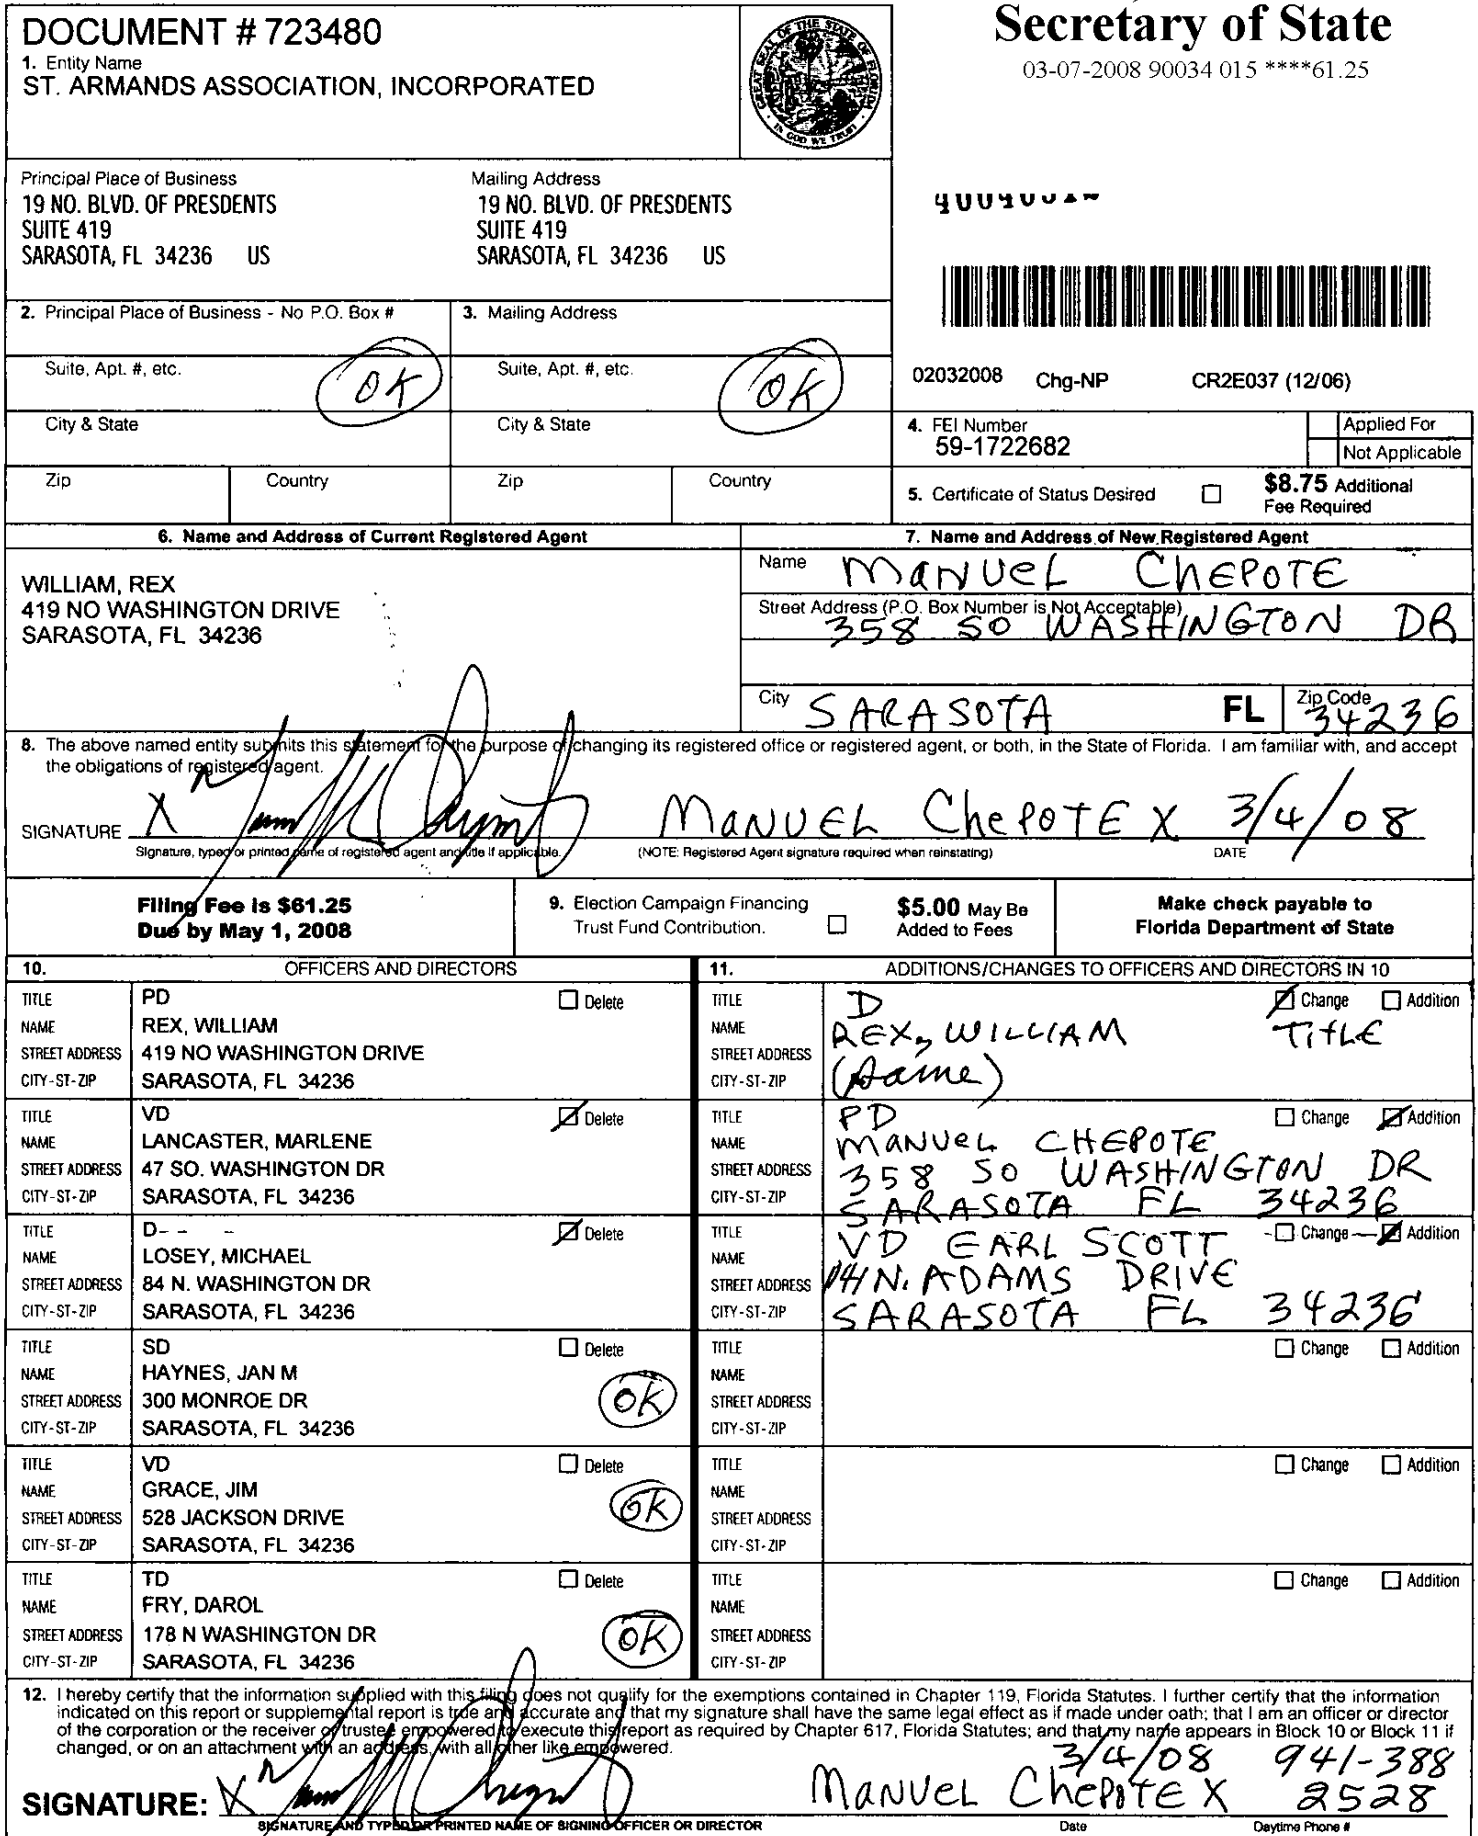 DOCUMENT # 723480
1. Entity Name
ST. ARMANDS ASSOCIATION, INCORPORATED
GREAT SEAL OF THE STATE OF FLORIDA
IN GOD WE TRUST
Secretary of State
03-07-2008 90034 015 ****61.25
Principal Place of Business
19 NO. BLVD. OF PRESDENTS
SUITE 419
SARASOTA, FL 34236 US
Mailing Address
19 NO. BLVD. OF PRESDENTS
SUITE 419
SARASOTA, FL 34236 US
2. Principal Place of Business - No P.O. Box #
Suite, Apt. #, etc. OK
City & State
Zip Country
3. Mailing Address
Suite, Apt. #, etc. OK
City & State
Zip Country
02032008 Chg-NP CR2E037 (12/06)
4. FEI Number
59-1722682
Applied For
Not Applicable
5. Certificate of Status Desired
$8.75 Additional
Fee Required
6. Name and Address of Current Registered Agent
WILLIAM, REX
419 NO WASHINGTON DRIVE
SARASOTA, FL 34236
7. Name and Address of New Registered Agent
Name MANUEL CHEPOTE
Street Address (P.O. Box Number is Not Acceptable)
358 SO WASHINGTON DR
City SARASOTA FL Zip Code 34236
8. The above named entity submits this statement for the purpose of changing its registered office or registered agent, or both, in the State of Florida. I am familiar with, and accept
the obligations of registered agent.
SIGNATURE X MANUEL CHEPOTE X 3/4/08
Signature, typed or printed name of registered agent and title if applicable. (NOTE: Registered Agent signature required when reinstating) DATE
Filing Fee is $61.25
Due by May 1, 2008
9. Election Campaign Financing
Trust Fund Contribution.
$5.00 May Be
Added to Fees
Make check payable to
Florida Department of State
10. OFFICERS AND DIRECTORS
TITLE PD Delete
NAME REX, WILLIAM
STREET ADDRESS 419 NO WASHINGTON DRIVE
CITY-ST-ZIP SARASOTA, FL 34236
TITLE VD Delete
NAME LANCASTER, MARLENE
STREET ADDRESS 47 SO. WASHINGTON DR
CITY-ST-ZIP SARASOTA, FL 34236
TITLE D Delete
NAME LOSEY, MICHAEL
STREET ADDRESS 84 N. WASHINGTON DR
CITY-ST-ZIP SARASOTA, FL 34236
TITLE SD Delete
NAME HAYNES, JAN M
STREET ADDRESS 300 MONROE DR OK
CITY-ST-ZIP SARASOTA, FL 34236
TITLE VD Delete
NAME GRACE, JIM
STREET ADDRESS 528 JACKSON DRIVE OK
CITY-ST-ZIP SARASOTA, FL 34236
TITLE TD Delete
NAME FRY, DAROL
STREET ADDRESS 178 N WASHINGTON DR OK
CITY-ST-ZIP SARASOTA, FL 34236
11. ADDITIONS/CHANGES TO OFFICERS AND DIRECTORS IN 10
TITLE D Change Addition
NAME REX, WILLIAM TITLE
STREET ADDRESS (Same)
CITY-ST-ZIP
TITLE PD Change Addition
NAME MANUEL CHEPOTE
STREET ADDRESS 358 SO WASHINGTON DR
CITY-ST-ZIP SARASOTA FL 34236
TITLE VD EARL SCOTT Change Addition
NAME
STREET ADDRESS 141 N. ADAMS DRIVE
CITY-ST-ZIP SARASOTA FL 34236
TITLE Change Addition
NAME
STREET ADDRESS
CITY-ST-ZIP
TITLE Change Addition
NAME
STREET ADDRESS
CITY-ST-ZIP
TITLE Change Addition
NAME
STREET ADDRESS
CITY-ST-ZIP
12. I hereby certify that the information supplied with this filing does not qualify for the exemptions contained in Chapter 119, Florida Statutes. I further certify that the information
indicated on this report or supplemental report is true and accurate and that my signature shall have the same legal effect as if made under oath; that I am an officer or director
of the corporation or the receiver or trustee empowered to execute this report as required by Chapter 617, Florida Statutes; and that my name appears in Block 10 or Block 11 if
changed, or on an attachment with an address, with all other like empowered.
3/4/08 941-388
SIGNATURE: X MANUEL CHEPOTE X 2528
SIGNATURE AND TYPED OR PRINTED NAME OF SIGNING OFFICER OR DIRECTOR Date Daytime Phone #